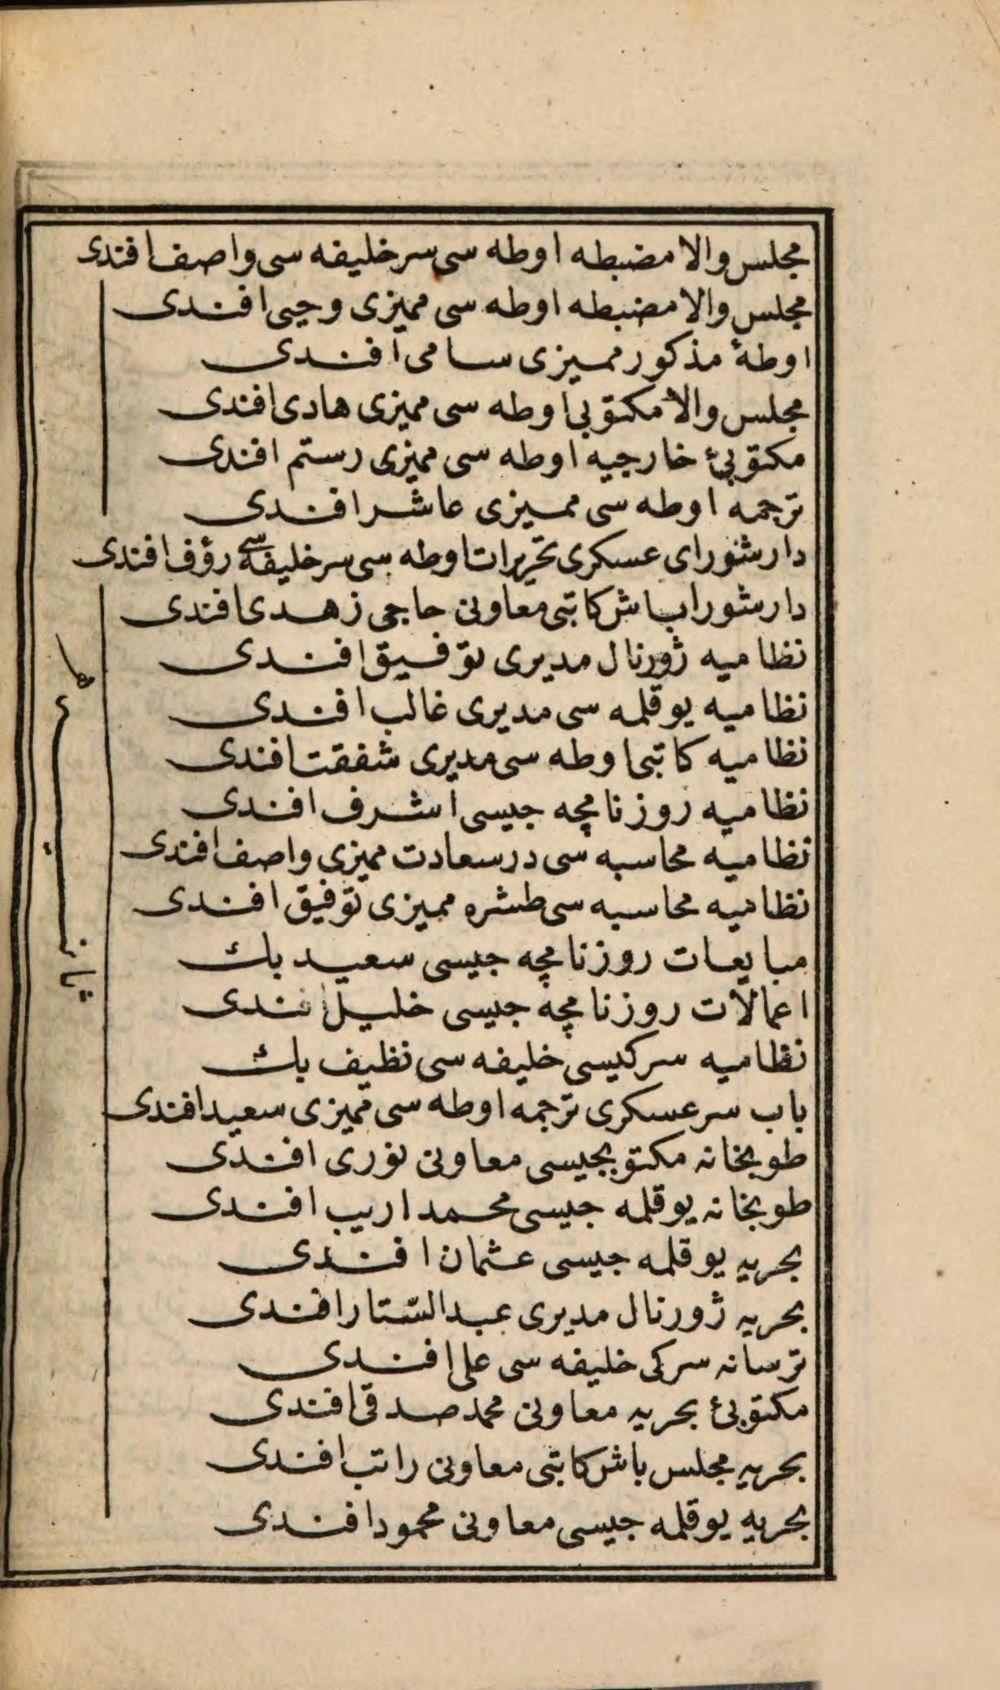 مجلس والا مضبطه اوطه سی سر خلیفه سی واصف افندی
مجلس والا مضبطه اوطه سی ممیزی وجیی افندی
اوطهٔ مذكور ممیزی سامی افندی
مجلس والا مكتوبی اوطه سی ممیزی هادی افندی
مكتوبیٔ خارجیه اوطه سی ممیزی رستم افندی
ترجمه اوطه سی ممیزی عاشر افندی
دار شورای عسكری تحریرات اوطه سی سر خلیفه سی رؤف افندی
دار شورا باش كاتبی معاونی حاجی زهدی افندی
نظامیه ژورنال مدیری توفیق افندی
نظامیه یوقلمه سی مدیری غالب افندی
نظامیه كاتبی اوطه سی مدیری شفقت افندی
نظامیه روزنامچه جیسی اشرف افندی
نظامیه محاسبه سی درسعادت ممیزی واصف افندی
نظامیه محاسبه سی طشره ممیزی توفیق افندی
مبایعات روزنامچه جیسی سعید بك
اعمالات روزنامچه جیسی خلیل افندی
نظامیه سركیسی خلیفه سی نظیف بك
باب سرعسكری ترجمه اوطه سی ممیزی سعید افندی
طوپخانه مكتوبجیسی معاونی نوری افندی
طوپخانه یوقلمه جیسی محمد اریب افندی
بحریه یوقلمه جیسی عثمان افندی
بحریه ژورنال مدیری عبد الستار افندی
ترسانه سركی خلیفه سی علی افندی
مكتوبیٔ بحریه معاونی محمد صدقی افندی
بحریه مجلس باش كاتبی معاونی راتب افندی
بحریه یوقلمه جیسی معاونی محمود افندی
ثانیه